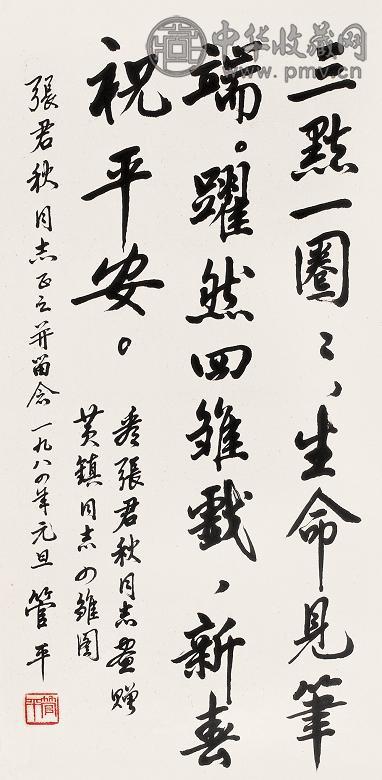 中华收藏网
www.pmv.cn
三點一圈〻，生命見筆
端。躍然四雏戲，新春
祝平安。
看張君秋同志畫贈
黄鎮同志四雏图
張君秋同志正之并留念 一九八四年元旦 管平
管平